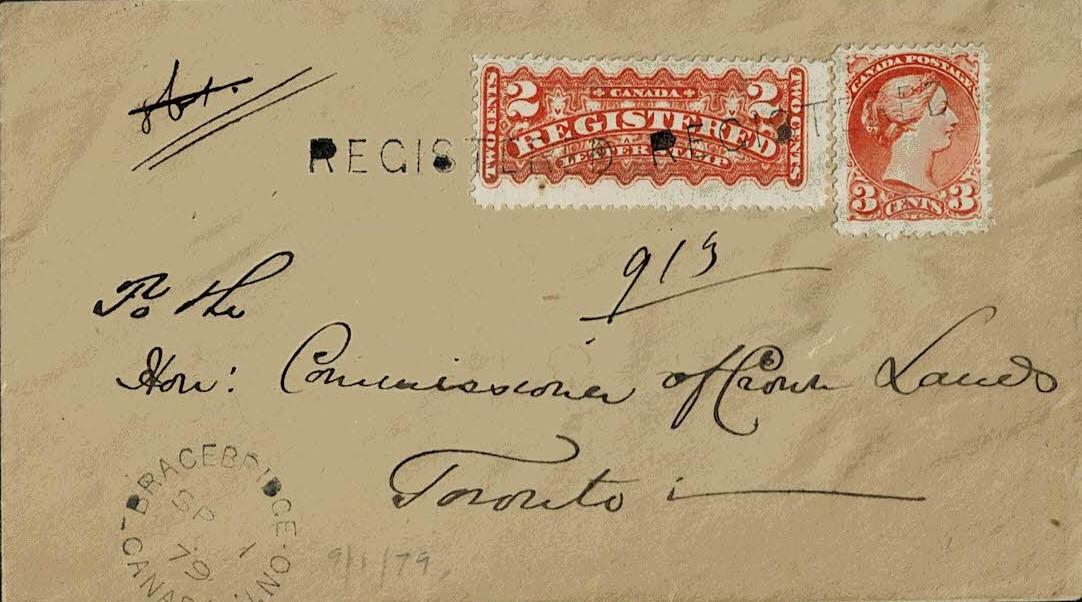 2 CANADA 2
TWO CENTS REGISTERED TWO CENTS
LETTER STAMP
CANADA POSTAGE
3 CENTS 3
REGISTERED REGISTERED
913
To the
Hon: Commissioner of Crown Lands
Toronto
BRACEBRIDGE·ONT
SP 1
79
CANADA
9/1/79